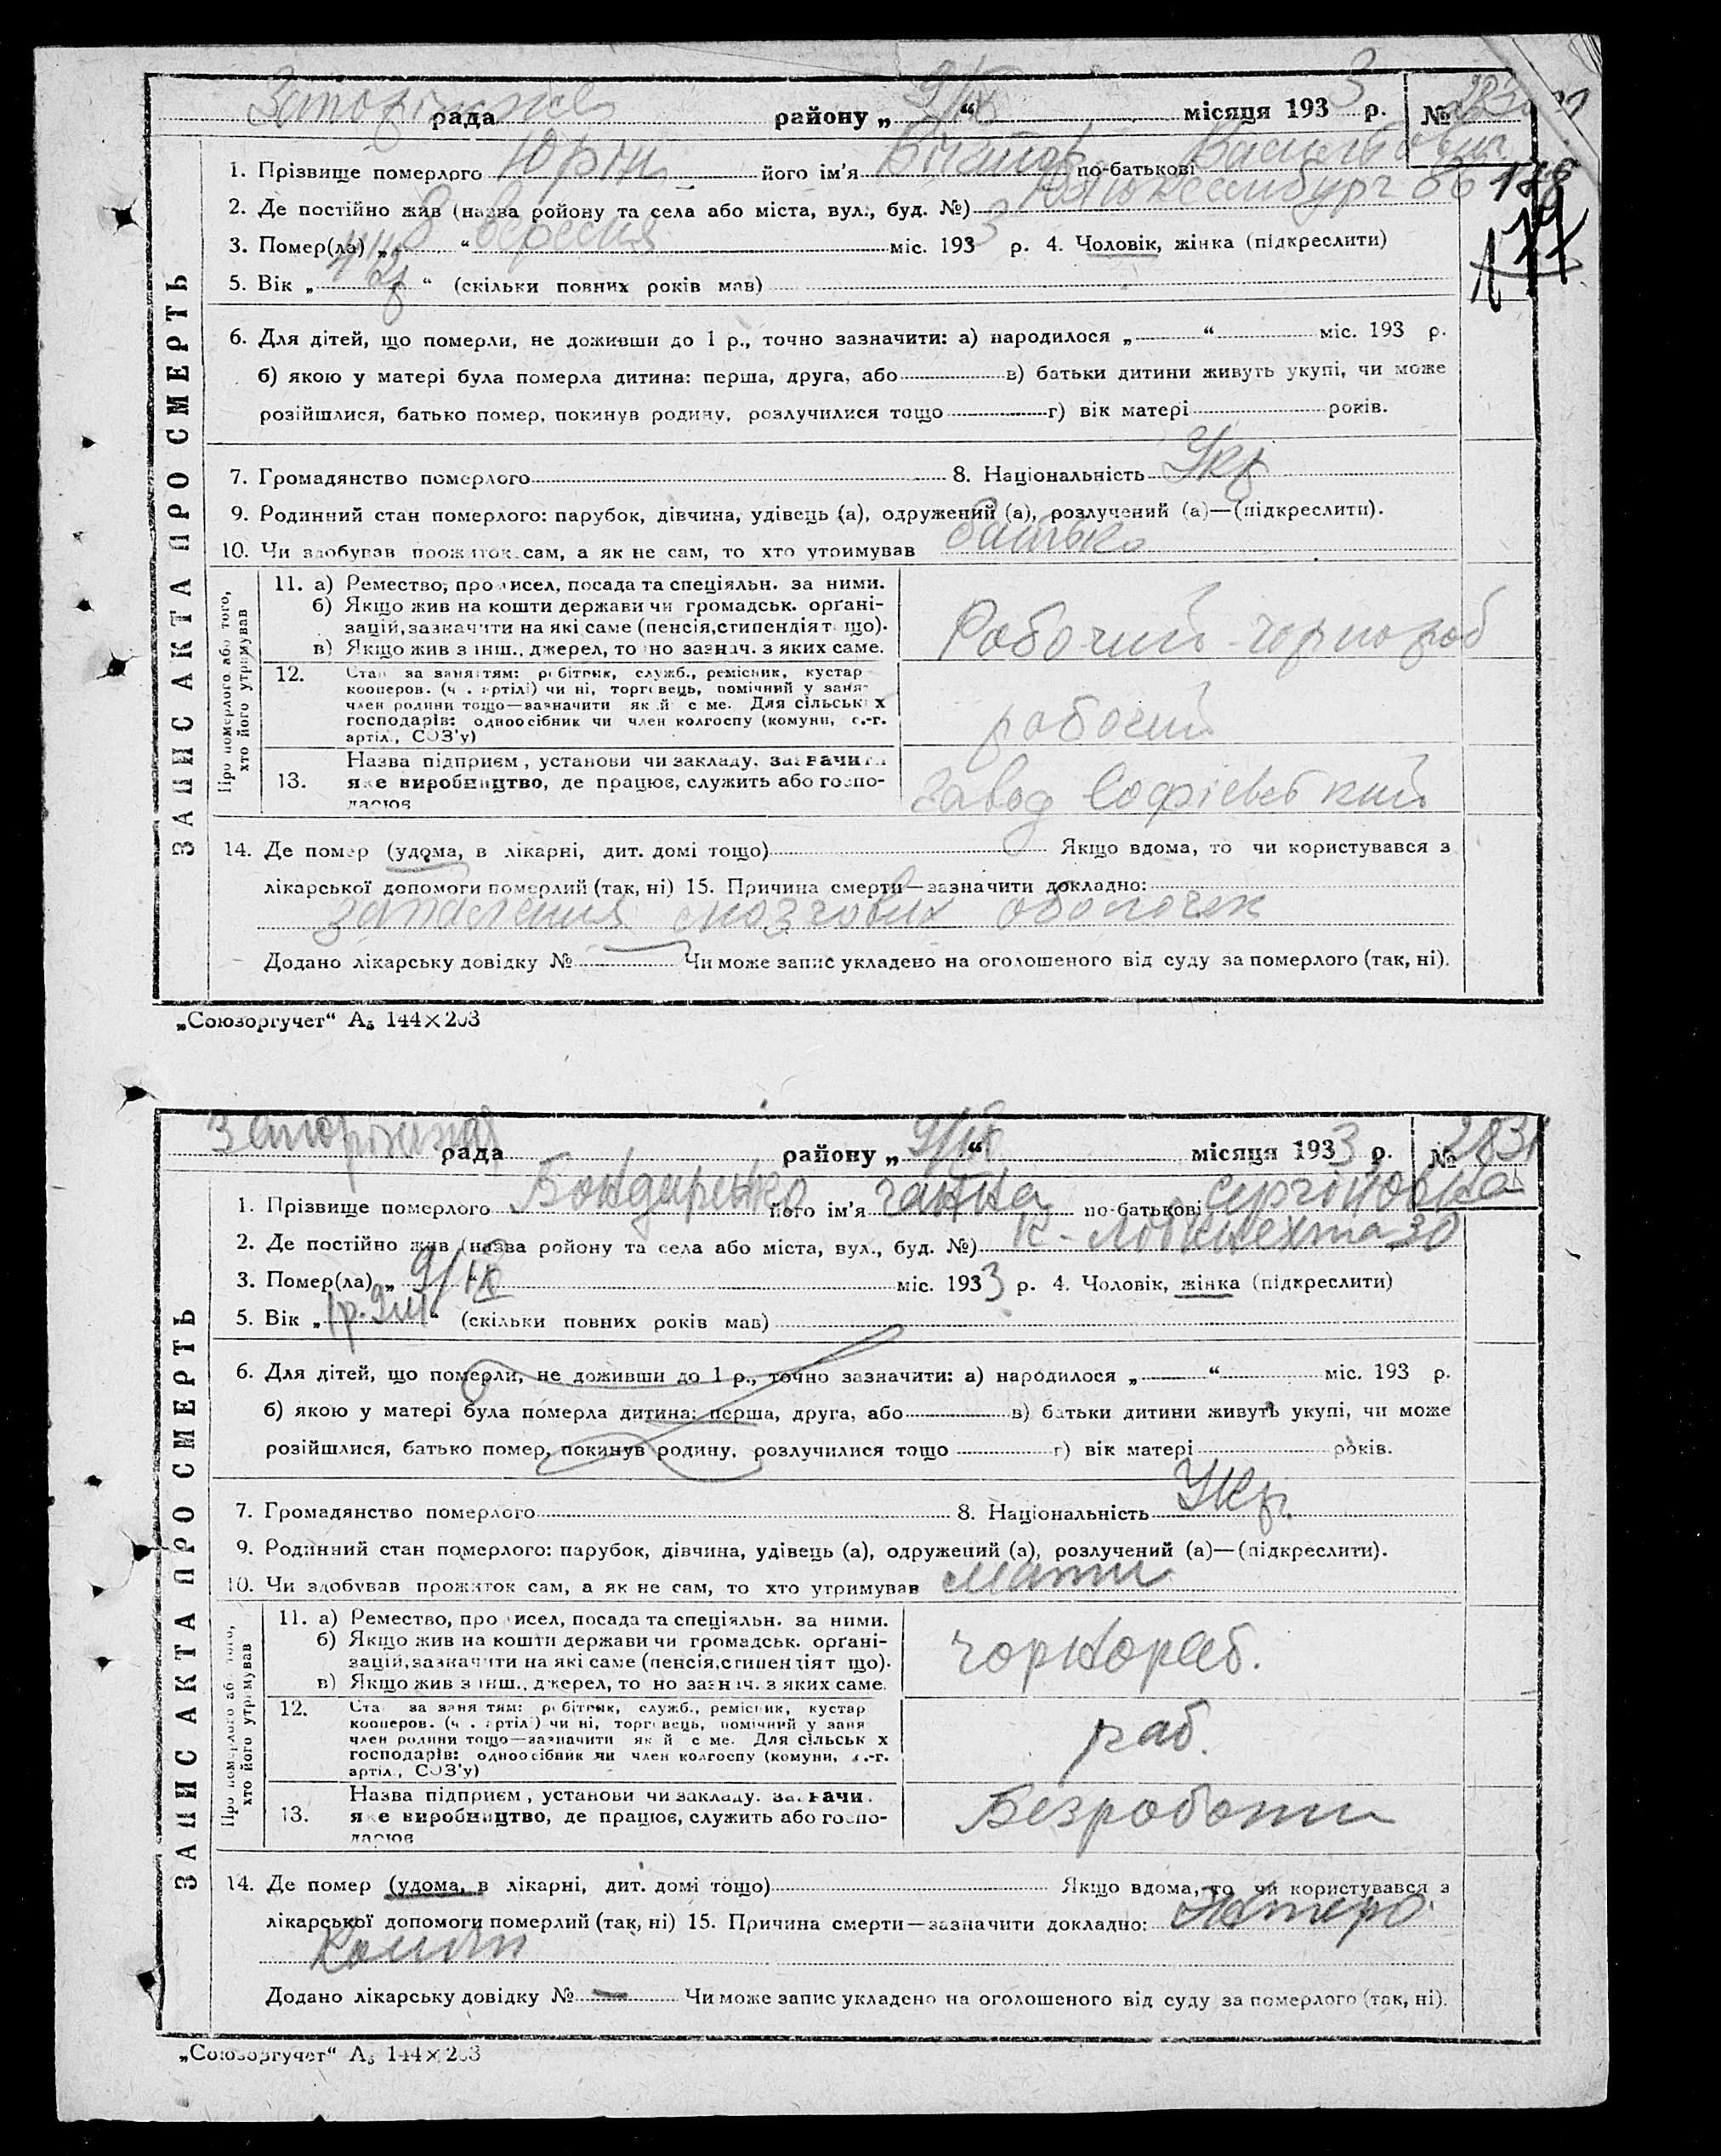 Запоріжжя рада району „ 9/IX “ місяця 1933 р. №
ЗАПИС АКТА ПРО СМЕРТЬ
1. Прізвище померлого Юрін його ім'я Віктор по-батькові Васильович
2. Де постійно жив (назва ройону та села або міста, вул., буд. №) Р. Люксембург 66
178
17
3. Помер(ла) „ 8 “ вересня міс. 1933 р. 4. Чоловік, жінка (підкреслити)
5. Вік „ “ (скільки повних років мав)
6. Для дітей, що померли, не доживши до 1 р., точно зазначити: а) народилося „ “ міс. 193 р.
б) якою у матері була померла дитина: перша, друга, або в) батьки дитини живуть укупі, чи може
розійшлися, батько помер, покинув родину, розлучилися тощо г) вік матері років.
7. Громадянство померлого 8. Національність Укр
9. Родинний стан померлого: парубок, дівчина, удівець (а), одружений (а), розлучений (а)—(підкреслити).
10. Чи здобував прожиток сам, а як не сам, то хто утримував батько
Про померлого або того, хто його утримував
11. а) Ремество, промисел, посада та спеціяльн. за ними.
б) Якщо жив на кошти держави чи громадськ. орґані-
зацій, зазначити на які саме (пенсія, стипендія т що).
в) Якщо жив з інш. джерел, то но зазнач. з яких саме.
Робочий-чорнороб
12. Стан за заняттям: робітник, служб., ремісник, кустар
кооперов. (ч . артілі) чи ні, торговець, помічний у заня-
член родини тощо—зазначити як й с ме. Для сільськ х
господарів: одноосібник чи член колгоспу (комуни, с.-г.
артіл., СОЗ'у)
робочий
13. Назва підприєм , установи чи закладу. зазначити
яке виробництво, де працює, служить або госпо-
дарює
завод Софієвський
14. Де помер (удома, в лікарні, дит. домі тощо) Якщо вдома, то чи користувався з
лікарської допомоги померлий (так, ні) 15. Причина смерти—зазначити докладно:
запалення мозгових оболочек
Додано лікарську довідку № Чи може запис укладено на оголошеного від суду за померлого (так, ні).
„Союзоргучет“ А5 144×203
Запоріжжя рада району „ 9/IX “ місяця 1933 р. № 2831
ЗАПИС АКТА ПРО СМЕРТЬ
1. Прізвище померлого Бондаренко його ім'я Ганна по-батькові Сергіївна
2. Де постійно жив (назва ройону та села або міста, вул., буд. №) К-Лібкнехта 30
3. Помер(ла) „ 9/IX міс. 1933 р. 4. Чоловік, жінка (підкреслити)
5. Вік „ 1р. 9м “ (скільки повних років мав)
6. Для дітей, що померли, не доживши до 1 р., точно зазначити: а) народилося „ “ міс. 193 р.
б) якою у матері була померла дитина: перша, друга, або в) батьки дитини живуть укупі, чи може
розійшлися, батько помер, покинув родину, розлучилися тощо г) вік матері років.
7. Громадянство померлого 8. Національність Укр.
9. Родинний стан померлого: парубок, дівчина, удівець (а), одружений (а), розлучений (а)—(підкреслити).
10. Чи здобував прожиток сам, а як не сам, то хто утримував Мати
Про померлого або того, хто його утримував
11. а) Ремество, промисел, посада та спеціяльн. за ними.
б) Якщо жив на кошти держави чи громадськ. орґані-
зацій, зазначити на які саме (пенсія, стипендія т що).
в) Якщо жив з інш. джерел, то но зазнач. з яких саме.
чорнораб.
12. Ста за заняттям: робітник, служб., ремісник, кустар
кооперов. (ч . артілі) чи ні, торговець, помічний у заня
член родини тощо—зазначити як й с ме. Для сільськ х
господарів: одноосібник чи член колгоспу (комуни, с.-г.
артіл., СОЗ'у)
раб.
13. Назва підприєм , установи чи закладу. зазначи
яке виробництво, де працює, служить або госпо-
дарює
Безработн
14. Де помер (удома, в лікарні, дит. домі тощо) Якщо вдома, то чи користувався з
лікарської допомоги померлий (так, ні) 15. Причина смерти—зазначити докладно: Ентеро
Коліт
Додано лікарську довідку № — Чи може запис укладено на оголошеного від суду за померлого (так, ні).
„Союзоргучет“ А5 144×203